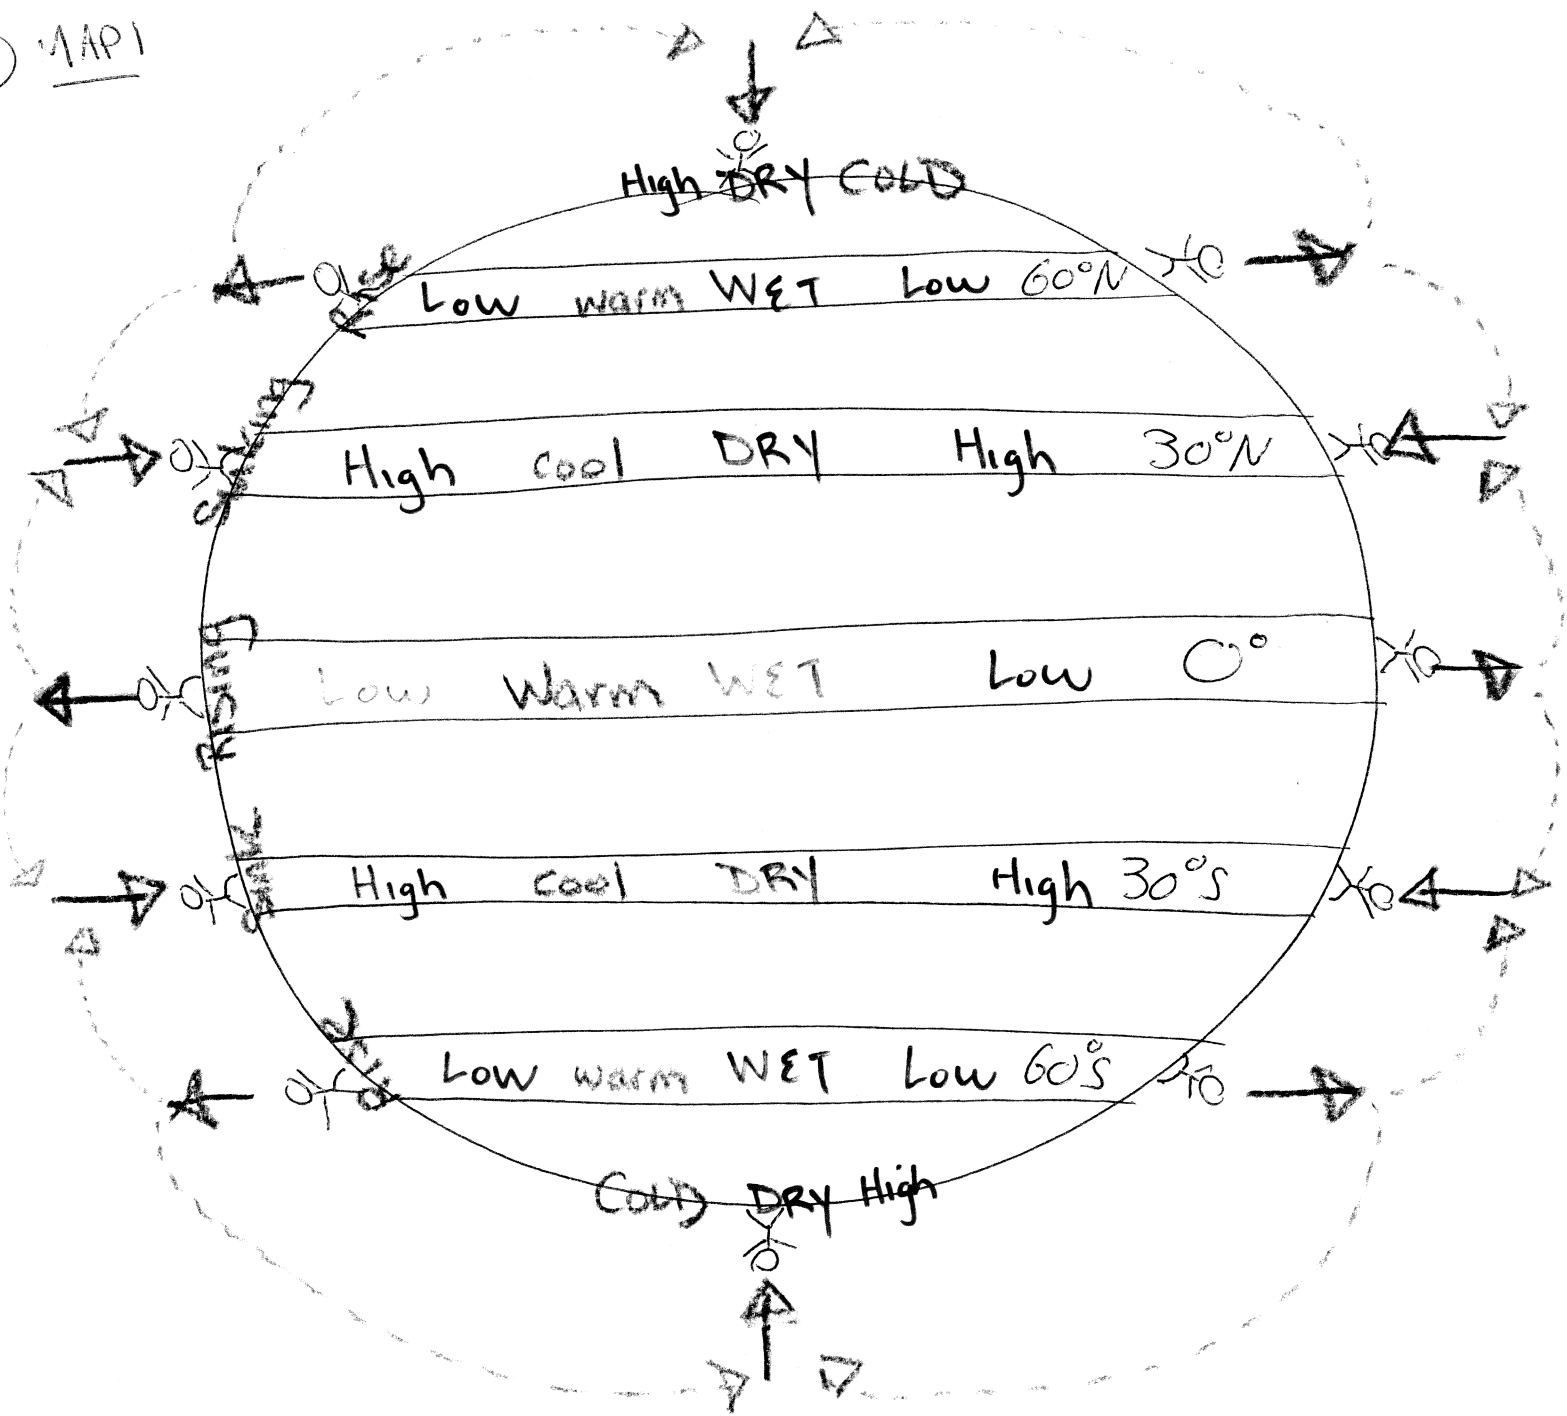 MAP 1
High DRY COLD
Rise
Low warm WET Low 60°N
Sinking
High cool DRY High 30°N
Rising
Low Warm WET Low 0°
Sink
High cool DRY High 30°S
Low warm WET Low 60°S
Rise
COLD DRY High